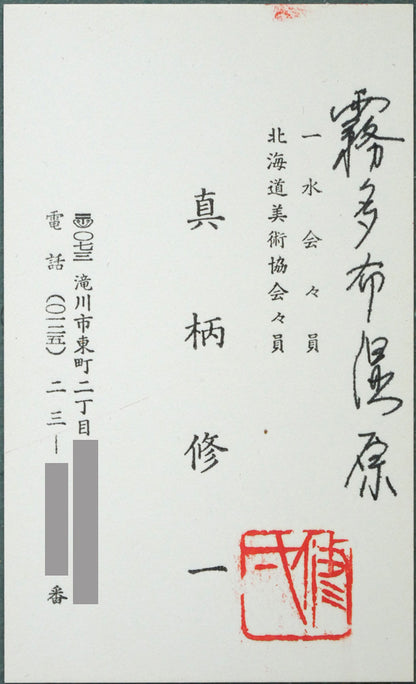 霧多布湿原
一水会々員
北海道美術協会々員
真柄修一
〒〇七三 滝川市東町二丁目
電話 (〇一二五) 二三ー 番